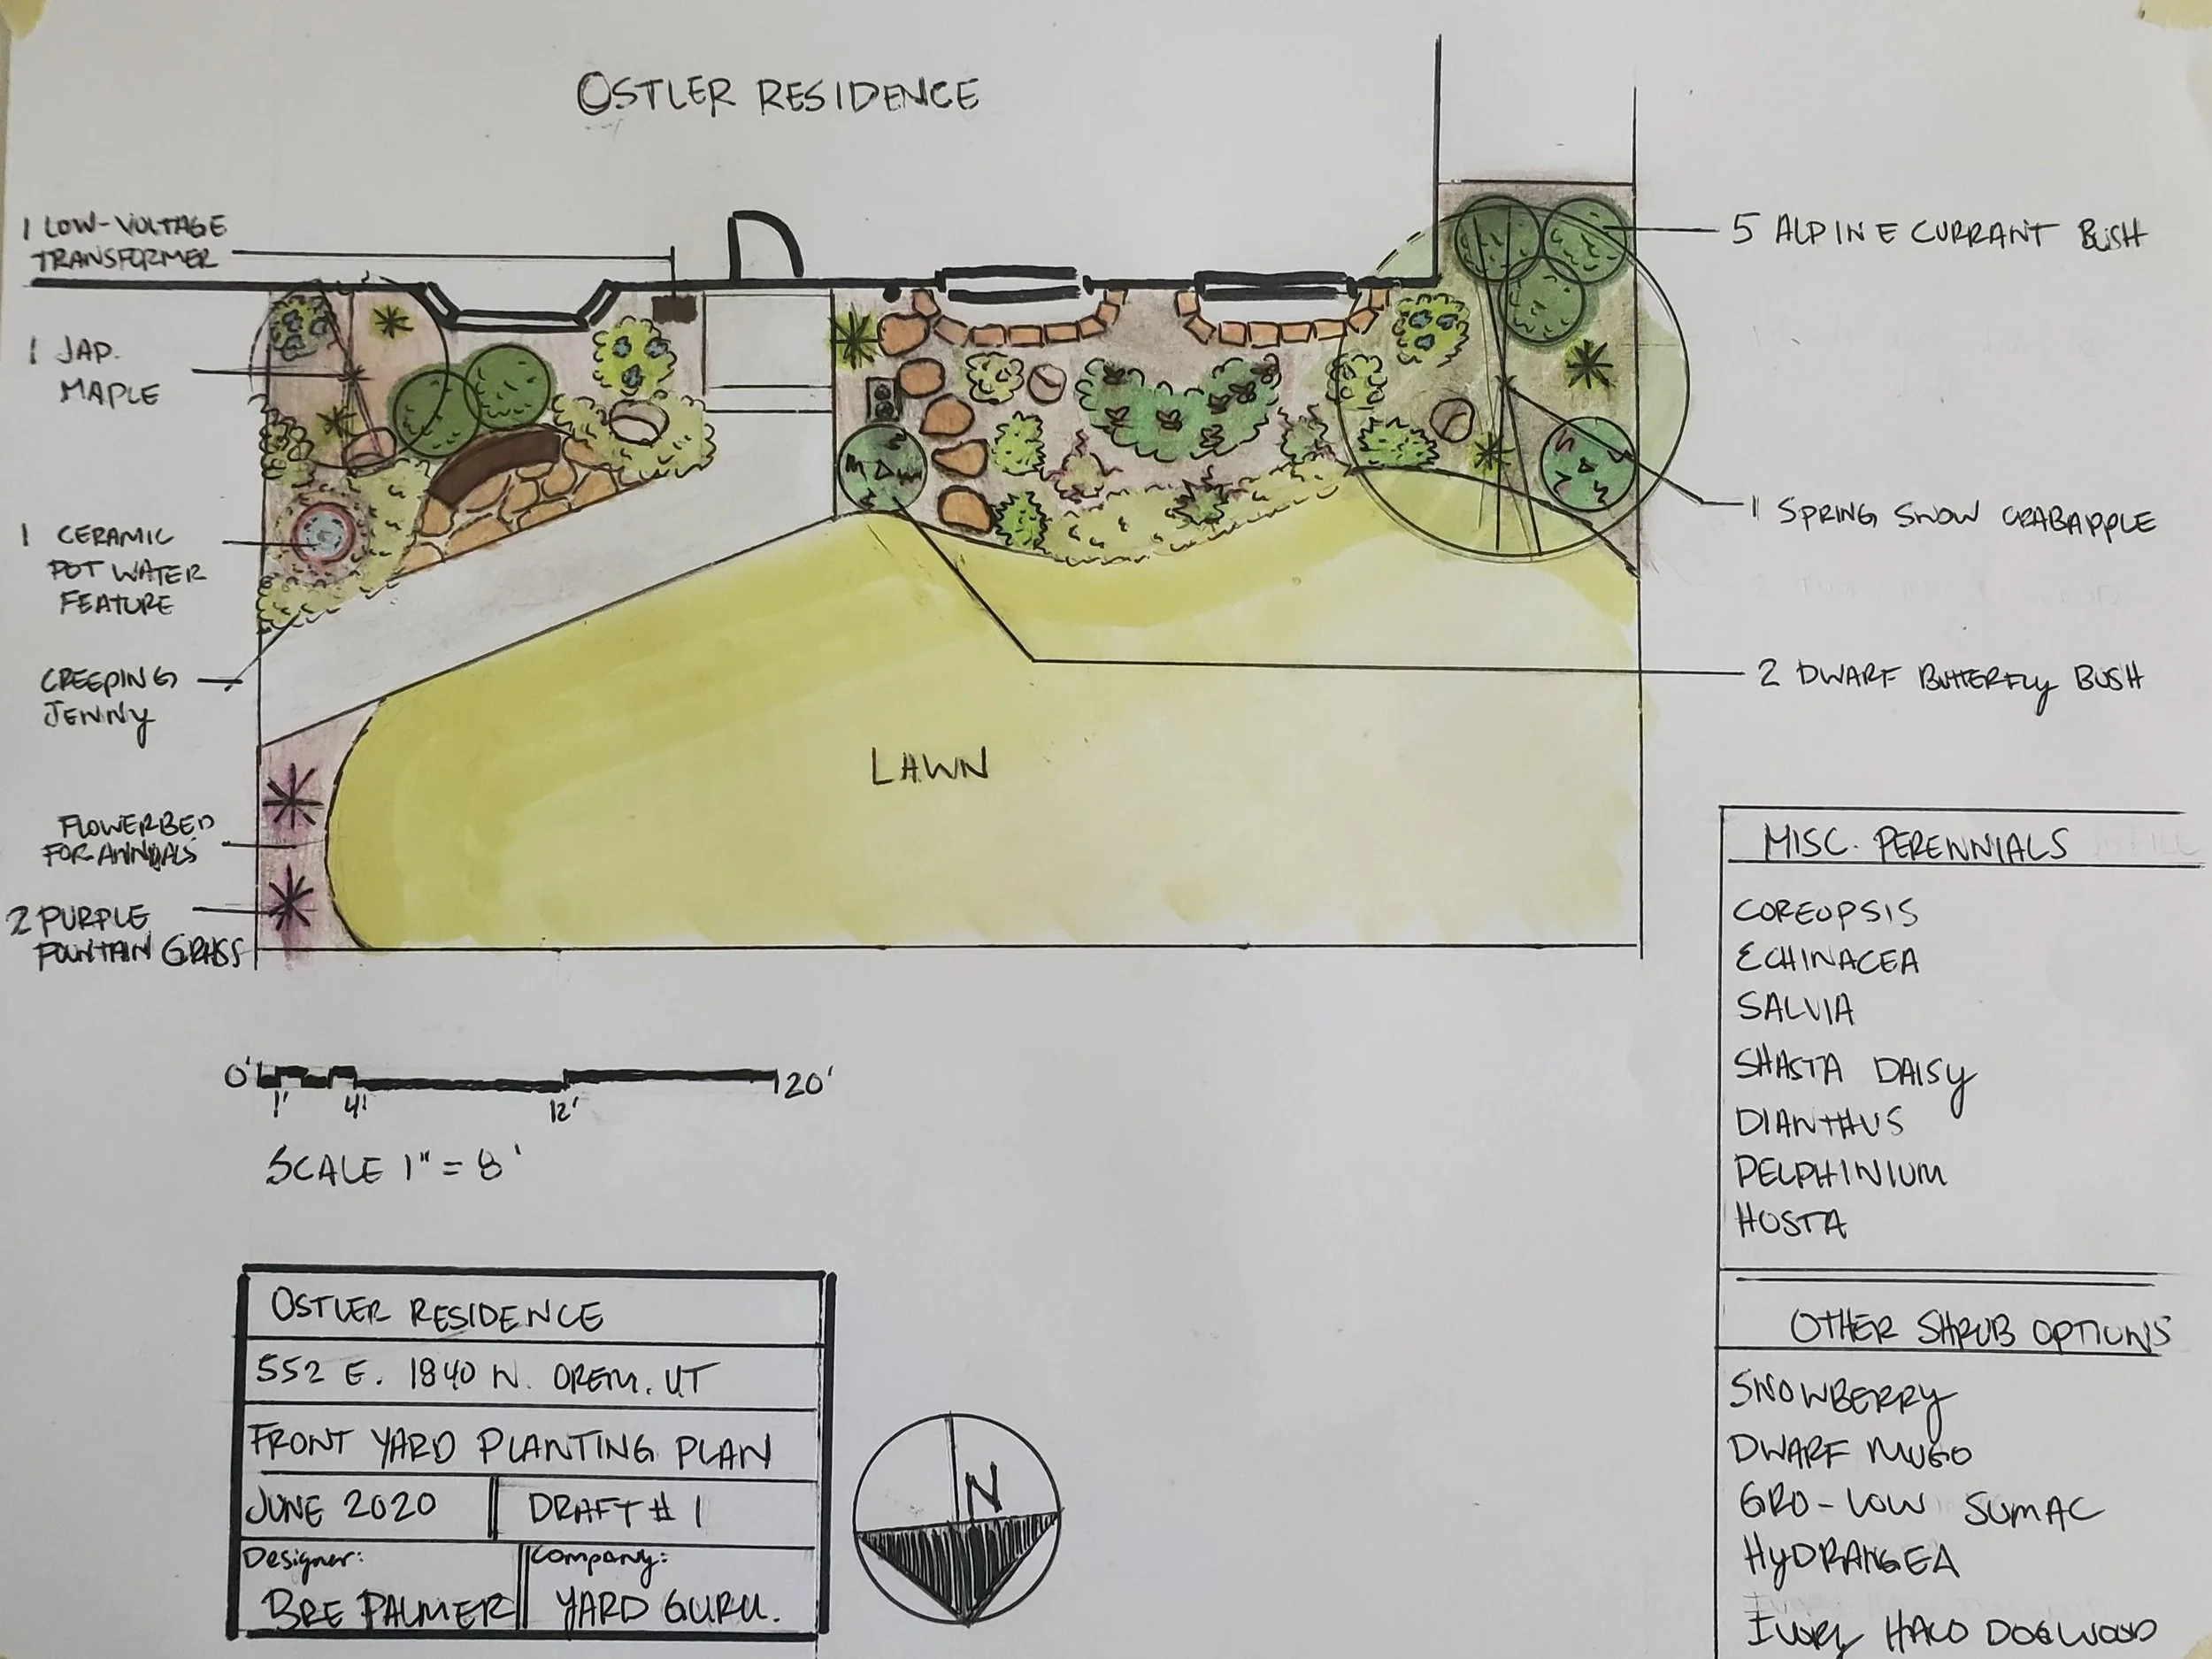 OSTLER RESIDENCE
1 LOW-VOLTAGE
TRANSFORMER
1 JAP.
MAPLE
1 CERAMIC
POT WATER
FEATURE
CREEPING
JENNY
FLOWERBED
FOR ANNUALS
2 PURPLE
FOUNTAIN GRASS
5 ALPINE CURRANT BUSH
1 SPRING SNOW CRABAPPLE
2 DWARF BUTTERFLY BUSH
LAWN
0'
1'
4'
12'
20'
SCALE 1" = 8'
OSTLER RESIDENCE
552 E. 1840 N. OREM. UT
FRONT YARD PLANTING PLAN
JUNE 2020
DRAFT # 1
Designer:
BRE PALMER
Company:
YARD GURU.
N
MISC. PERENNIALS
COREOPSIS
ECHINACEA
SALVIA
SHASTA DAISY
DIANTHUS
DELPHINIUM
HOSTA
OTHER SHRUB OPTIONS
SNOWBERRY
DWARF MUGO
GRO-LOW SUMAC
HYDRANGEA
IVORY HALO DOGWOOD